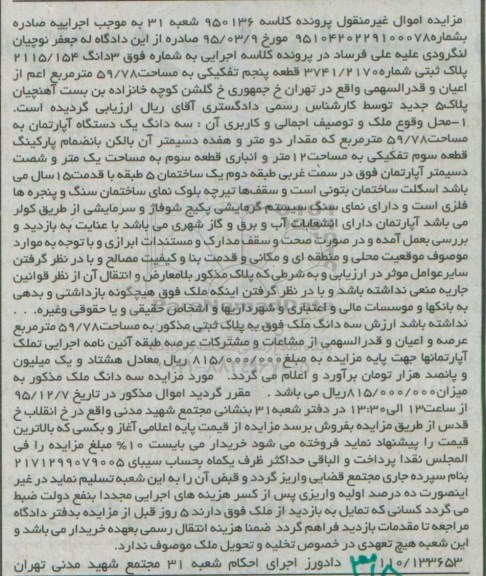 مزایده اموال غیرمنقول پرونده کلاسه ۹۵۰۱۳۶ شعبه ۳۱ به موجب اجراییه صادره
بشماره ۹۵۱۰۴۲۰۲۲۹۱۰۰۰۷۸ مورخ ۹۵/۰۳/۹ صادره از این دادگاه له جعفر نوچیان
لنگرودی علیه علی فرساد در پرونده کلاسه اجرایی به شماره فوق ۳دانگ ۲۱۱۵/۱۵۴
پلاک ثبتی شماره ۳۷۴۱/۲۱۷۰ قطعه پنجم تفکیکی به مساحت ۵۹/۷۸ مترمربع اعم از
اعیان و قدرالسهمی واقع در تهران خ جمهوری خ گلشن کوچه خانزاده بن بست آهنچیان
پلاک۵ جدید توسط کارشناس رسمی دادگستری آقای ریال ارزیابی گردیده است.
۱-محل وقوع ملک و توصیف اجمالی و کاربری آن : سه دانگ یک دستگاه آپارتمان به
مساحت ۵۹/۷۸ مترمربع که مقدار دو متر و هفده دسیمتر آن بالکن بانضمام پارکینگ
قطعه سوم تفکیکی به مساحت ۱۲متر و انباری قطعه سوم به مساحت یک متر و شصت
دسیمتر آپارتمان فوق در سمت غربی طبقه دوم یک ساختمان ۵ طبقه با قدمت ۱۵سال می
باشد اسکلت ساختمان بتونی است و سقف‌ها تیرچه بلوک نمای ساختمان سنگ و پنجره ها
فلزی است و دارای نمای سنگ سیستم گرمایشی پکیج شوفاژ و سرمایشی از طریق کولر
می باشد آپارتمان دارای انشعابات آب و برق و گاز شهری می باشد با عنایت به بازدید و
بررسی بعمل آمده و در صورت صحت و سقف مدارک و مستندات ابرازی و با توجه به موارد
موصوف موقعیت محلی و منطقه ای و مکانی و قدمت بنا و کیفیت مصالح و با در نظر گرفتن
سایرعوامل موثر در ارزیابی و به شرطی که پلاک مذکور بلامعارض و انتقال آن از نظر قوانین
جاریه منعی نداشته باشد و با در نظر گرفتن اینکه ملک فوق هیچگونه بازداشتی و بدهی
به بانکها و موسسات مالی و اعتباری و شهرداریها و اشخاص حقیقی و یا حقوقی وغیره. . .
نداشته باشد ارزش سه دانگ ملک فوق به پلاک ثبتی مذکور به مساحت ۵۹/۷۸ مترمربع
عرصه و اعیان و قدرالسهمی از مشاعات و مشترکات عرصه طبقه آئین نامه اجرایی تملک
آپارتمانها جهت پایه مزایده به مبلغ ۸۱۵/۰۰۰/۰۰۰ ریال معادل هشتاد و یک میلیون
و پانصد هزار تومان برآورد و اعلام می گردد. مورد مزایده سه دانگ ملک مذکور به
میزان ۸۱۵/۰۰۰/۰۰۰ریال می باشد . مقرر گردید اموال مذکور در تاریخ ۹۵/۱۲/۷
از ساعت۱۳ الی ۱۳:۳۰ در دفتر شعبه ۳۱ بنشانی مجتمع شهید مدنی واقع در خ انقلاب خ
قدس از طریق مزایده بفروش برسد مزایده از قیمت پایه اعلامی آغاز و بکسی که بالاترین
قیمت را پیشنهاد نماید فروخته می شود خریدار می بایست ۱۰% مبلغ مزایده را فی
المجلس نقدا پرداخت و الباقی حداکثر ظرف یکماه بحساب سیبای ۲۱۷۱۲۹۹۰۷۹۰۰۵
بنام سپرده جاری مجتمع قضایی واریز گردد و قبض آن را به این شعبه تسلیم نماید در غیر
اینصورت ده درصد اولیه واریزی پس از کسر هزینه های اجرایی مجددا بنفع دولت ضبط
می گردد کسانی که تمایل به بازدید از ملک فوق دارند ۵ روز قبل از مزایده بدفتر دادگاه
مراجعه تا مقدمات بازدید فراهم گردد ضمنا هزینه انتقال رسمی بعهده خریدار می باشد و
این شعبه هیچ تعهدی در خصوص تخلیه و تحویل ملک موصوف ندارد.
۱۱۰/۱۳۳۶۵۳ دادورز اجرای احکام شعبه ۳۱ مجتمع شهید مدنی تهران